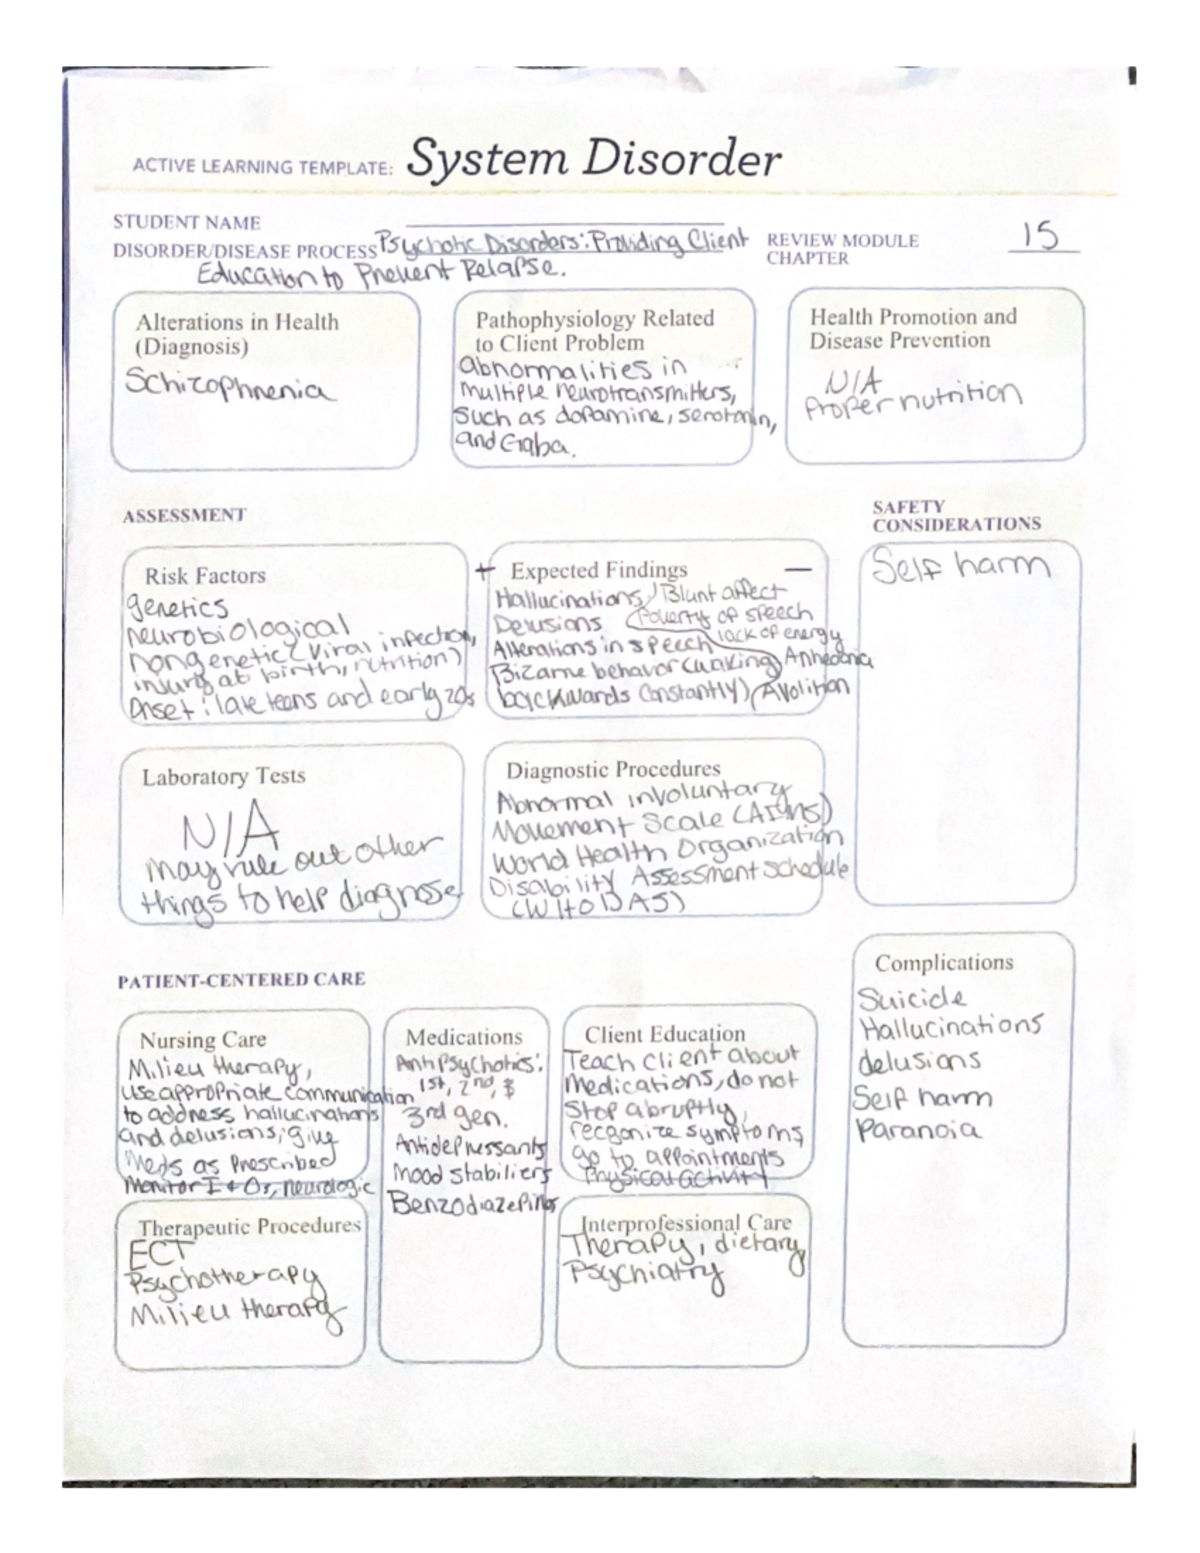 ACTIVE LEARNING TEMPLATE: System Disorder
STUDENT NAME
DISORDER/DISEASE PROCESS Psychotic Disorders: Providing Client
Education to Prevent Relapse.
REVIEW MODULE
CHAPTER
15
Alterations in Health
(Diagnosis)
Schizophrenia
Pathophysiology Related
to Client Problem
Abnormalities in
multiple neurotransmitters,
such as dopamine, serotonin,
and Gaba.
Health Promotion and
Disease Prevention
N/A
Proper nutrition
ASSESSMENT
SAFETY
CONSIDERATIONS
Risk Factors
genetics
neurobiological
nongenetic (viral infection,
injury at birth, nutrition)
Onset: late teens and early 20s
+ Expected Findings —
Hallucinations / Blunt affect
Delusions (Poverty of speech
Alterations in speech lack of energy
Bizarre behavior (walking Anhedonia
backwards constantly) Avolition
Self harm
Laboratory Tests
N/A
May rule out other
things to help diagnose
Diagnostic Procedures
Abnormal involuntary
Movement Scale (AIMS)
World Health Organization
Disability Assessment schedule
(WHODAS)
PATIENT-CENTERED CARE
Nursing Care
Milieu therapy,
use appropriate communication
to address hallucinations
and delusions, give
Meds as prescribed
Monitor I & Os, neurologic
Medications
Antipsychotics:
1st, 2nd, &
3rd gen.
Antidepressants
Mood stabiliers
Benzodiazepines
Client Education
Teach client about
medications, do not
stop abruptly,
recgonize symptoms,
go to appointments
Physical activity
Complications
Suicide
Hallucinations
delusions
Self harm
Paranoia
Therapeutic Procedures
ECT
Psychotherapy
Milieu therapy
Interprofessional Care
Therapy, dietary,
Psychiatry